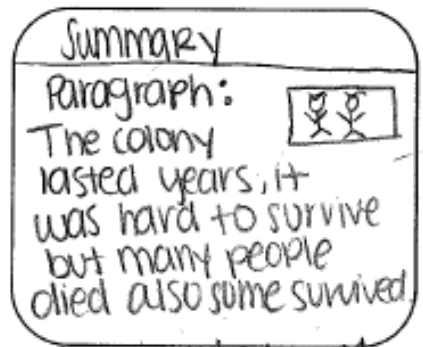 Summary
Paragraph:
The colony
lasted years, it
was hard to survive
but many people
died also some survived